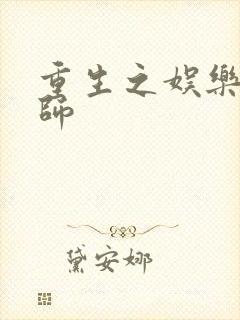 重生之娛樂
師
黛安娜